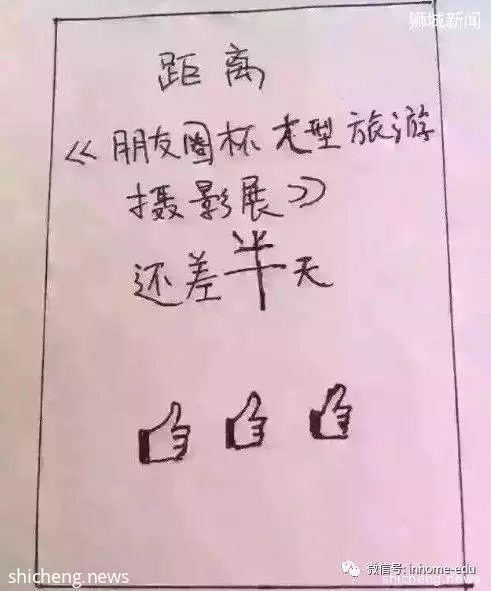 狮城新闻
距离
《朋友圈杯大型旅游
摄影展》
还差半天
微信号: inhome-edu
shicheng.news
shicheng.news